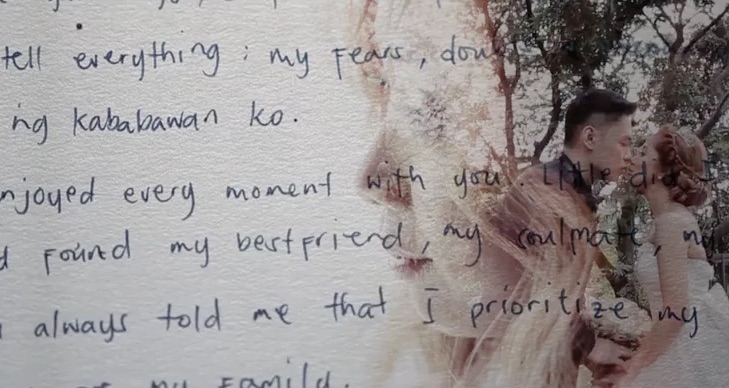 tell everything ; my fears,
ng kababawan ko.
enjoyed every moment with you. Little did I
found my bestfriend, my soulmate, my
always told me that I prioritize my
my Family.